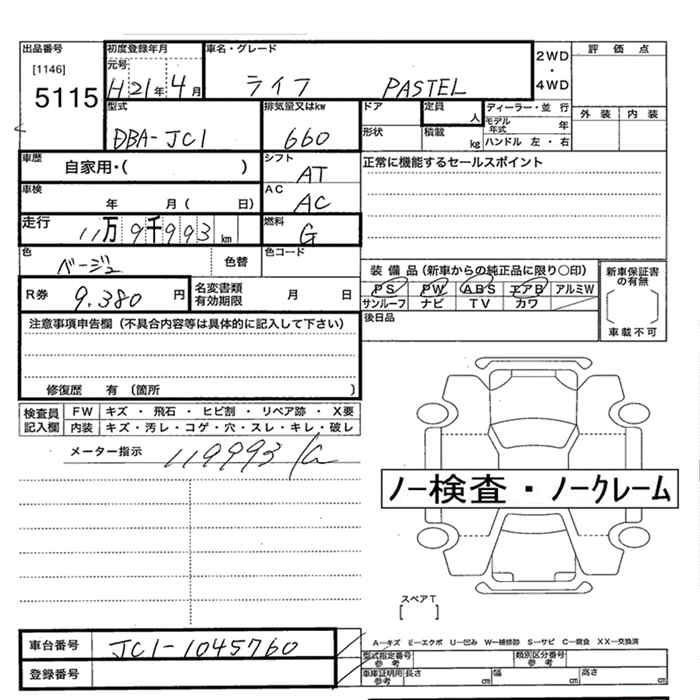 出品番号 初度登録年月 車名・グレード 2WD ・ 4WD 評価点
[1146] 元号
5115 H21年 4月 ライフ PASTEL
型式 排気量又はkw ドア 定員 人 ディーラー・並 行 外装 内装
モデル年式 年
DBA-JC1 660 形状 積載 kg ハンドル 左・右
車歴 自家用・( ) シフト AT 正常に機能するセールスポイント
車検 年 月( 日) AC AC
走行 11万9千993km 燃料 G
色 ベージュ 色替 色コード
装備品(新車からの純正品に限り○印) 新車保証書の有無
R券 9.380円 名変書類有効期限 月 日 PS PW ABS エアB アルミW
サンルーフ ナビ TV カワ
[ ] 車載不可
注意事項申告欄(不具合内容等は具体的に記入して下さい) 後日品
修復歴 有 (箇所 )
検査員記入欄 FW キズ・飛石・ヒビ割・リペア跡・X要
内装 キズ・汚レ・コゲ・穴・スレ・キレ・破レ
メーター指示 119993
ノー検査・ノークレーム
スペアT
[ ]
車台番号 JC1-1045760 A…キズ E…エクボ U…凹み W…補修跡 S…サビ C…腐食 XX…交換済
型式指定番号参考 類別区分番号参考
登録番号 車庫証明用参考 長さ cm 幅 cm 高さ cm